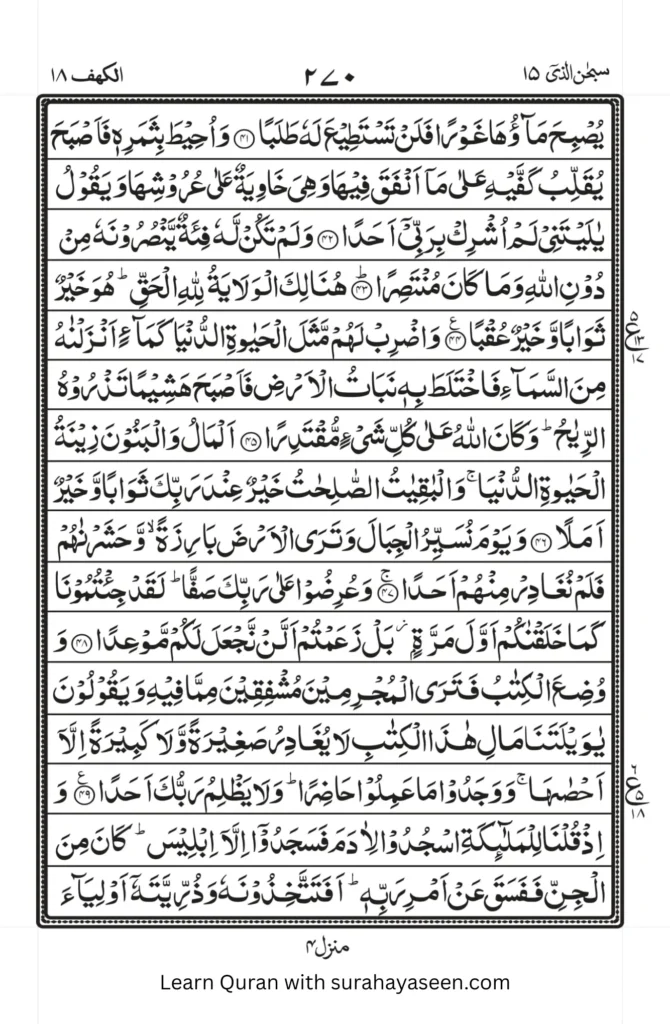 سبحٰن الذیٓ ۱۵ ۲۷۰ الکهف ۱۸
يُصْبِحَ مَآؤُهَا غَوْرًا فَلَنْ تَسْتَطِيْعَ لَهٗ طَلَبًا ﴿۴۱﴾ وَاُحِيْطَ بِثَمَرِهٖ فَاَصْبَحَ
يُقَلِّبُ كَفَّيْهِ عَلٰى مَآ اَنْفَقَ فِيْهَا وَهِىَ خَاوِيَةٌ عَلٰى عُرُوْشِهَا وَيَقُوْلُ
يٰلَيْتَنِىْ لَمْ اُشْرِكْ بِرَبِّىْٓ اَحَدًا ﴿۴۲﴾ وَلَمْ تَكُنْ لَّهٗ فِئَةٌ يَّنْصُرُوْنَهٗ مِنْ
دُوْنِ اللّٰهِ وَمَا كَانَ مُنْتَصِرًا ﴿۴۳﴾ؕ هُنَالِكَ الْوَلَايَةُ لِلّٰهِ الْحَقِّ ؕ هُوَ خَيْرٌ
ثَوَابًا وَّخَيْرٌ عُقْبًا ﴿۴۴﴾ع وَاضْرِبْ لَهُمْ مَّثَلَ الْحَيٰوةِ الدُّنْيَا كَمَآءٍ اَنْزَلْنٰهُ
۵ ع ۱۳ ۱۷
مِنَ السَّمَآءِ فَاخْتَلَطَ بِهٖ نَبَاتُ الْاَرْضِ فَاَصْبَحَ هَشِيْمًا تَذْرُوْهُ
الرِّيٰحُ ؕ وَكَانَ اللّٰهُ عَلٰى كُلِّ شَىْءٍ مُّقْتَدِرًا ﴿۴۵﴾ اَلْمَالُ وَالْبَنُوْنَ زِيْنَةُ
الْحَيٰوةِ الدُّنْيَا ۚ وَالْبٰقِيٰتُ الصّٰلِحٰتُ خَيْرٌ عِنْدَ رَبِّكَ ثَوَابًا وَّخَيْرٌ
اَمَلًا ﴿۴۶﴾ وَيَوْمَ نُسَيِّرُ الْجِبَالَ وَتَرَى الْاَرْضَ بَارِزَةً ۙ وَّحَشَرْنٰهُمْ
فَلَمْ نُغَادِرْ مِنْهُمْ اَحَدًا ﴿۴۷﴾ۚ وَعُرِضُوْا عَلٰى رَبِّكَ صَفًّا ؕ لَقَدْ جِئْتُمُوْنَا
كَمَا خَلَقْنٰكُمْ اَوَّلَ مَرَّةٍۢ ز بَلْ زَعَمْتُمْ اَلَّنْ نَّجْعَلَ لَكُمْ مَّوْعِدًا ﴿۴۸﴾ وَ
وُضِعَ الْكِتٰبُ فَتَرَى الْمُجْرِمِيْنَ مُشْفِقِيْنَ مِمَّا فِيْهِ وَيَقُوْلُوْنَ
يٰوَيْلَتَنَا مَالِ هٰذَا الْكِتٰبِ لَا يُغَادِرُ صَغِيْرَةً وَّلَا كَبِيْرَةً اِلَّآ
اَحْصٰىهَا ۚ وَوَجَدُوْا مَا عَمِلُوْا حَاضِرًا ؕ وَلَا يَظْلِمُ رَبُّكَ اَحَدًا ﴿۴۹﴾ع وَ
۶ ع ۵ ۱۸
اِذْ قُلْنَا لِلْمَلٰٓئِكَةِ اسْجُدُوْا لِاٰدَمَ فَسَجَدُوْٓا اِلَّآ اِبْلِيْسَ ؕ كَانَ مِنَ
الْجِنِّ فَفَسَقَ عَنْ اَمْرِ رَبِّهٖ ؕ اَفَتَتَّخِذُوْنَهٗ وَذُرِّيَّتَهٗٓ اَوْلِيَآءَ
منزل۴
Learn Quran with surahayaseen.com